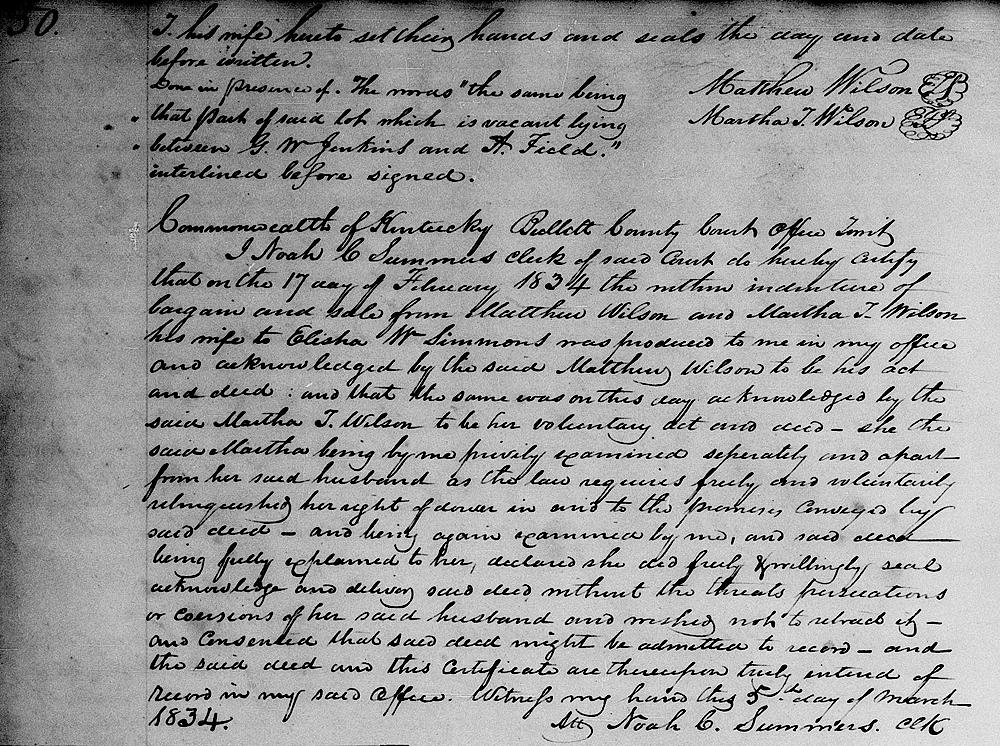 50.
T. his wife hereto set their hands and seals the day and date
before written.
Done in presence of. The words "the same being
that part of said lot which is vacant lying
between G. W Jenkins and A. Field."
interlined before signed.
Matthew Wilson
Martha T. Wilson
Commonwealth of Kentucky Bullitt County Court office
I Noah C Summers clerk of said Court do hereby certify
that on the 17 day of February 1834 the within indenture of
bargain and sale from Matthew Wilson and Martha T. Wilson
his wife to Elisha W Simmons was produced to me in my office
and acknowledged by the said Matthew Wilson to be his act
and deed : and that the same was on this day acknowledged by the
said Martha T. Wilson to be her voluntary act and deed – she the
said Martha being by me privily examined seperately and apart
from her said husband as the law requires freely and voluntarily
relinquished her right of dower in and to the premises conveyed by
said deed – and being again examined by me, and said deed
being fully explained to her, declared she did freely & willingly seal
acknowledge and deliver said deed without the threats persuations
or coersions of her said husband and wished not to retract it –
and consented that said deed might be admitted to record – and
the said deed and this certificate are thereupon truly entered of
record in my said office. Witness my hand this 5th day of March
1834.
Att Noah C. Summers. Clk